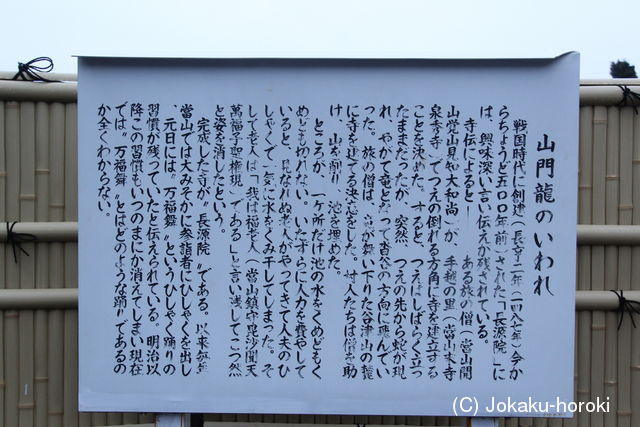 山門龍のいわれ
戦国時代に創建(長享二年(一四八七年)今か
らちょうど五〇〇年前)された「長源院」に
は、興味深い言い伝えが残されている。
寺伝によると― ある旅の僧(當山開
山覚山見や大和尚)が、手越の里(當山本寺
泉秀寺)でつえの倒れる方角に寺を建立する
ことを決めた。すると、つえはしばらく立っ
たままだったが、突然、つえの先から蛇が現
れ、やがて竜となって沓谷の方向に飛んでい
った。旅の僧は、竜が舞い下りた谷津山の麓
に寺を建てる決意をした。村人たちは僧を助
け、山を削り、池を埋めた。
ところが、一ヶ所だけ池の水をくめどもく
めども切れない。いたずらに人力を費やして
いると、見なれぬ老人がやってきて人夫のひ
しゃくで、一気に水をくみ干してしまった。そ
して老人は「我は福老人(當山鎮守毘沙聞天
萬福子聖権現)である」と言い残してこつ然
と姿を消したという。
完成した寺が〝長源院〟である。以来毎年
當山では大みそかに参詣者にひしゃくを出し
、元日には〝万福舞〟というひしゃく踊りの
習慣が残っていたと伝えられている。明治以
降この習慣もいつのまにか消えてしまい現在
では〝万福舞〟とはどのような踊りであるの
か全くわからない。
(C) Jokaku-horoki